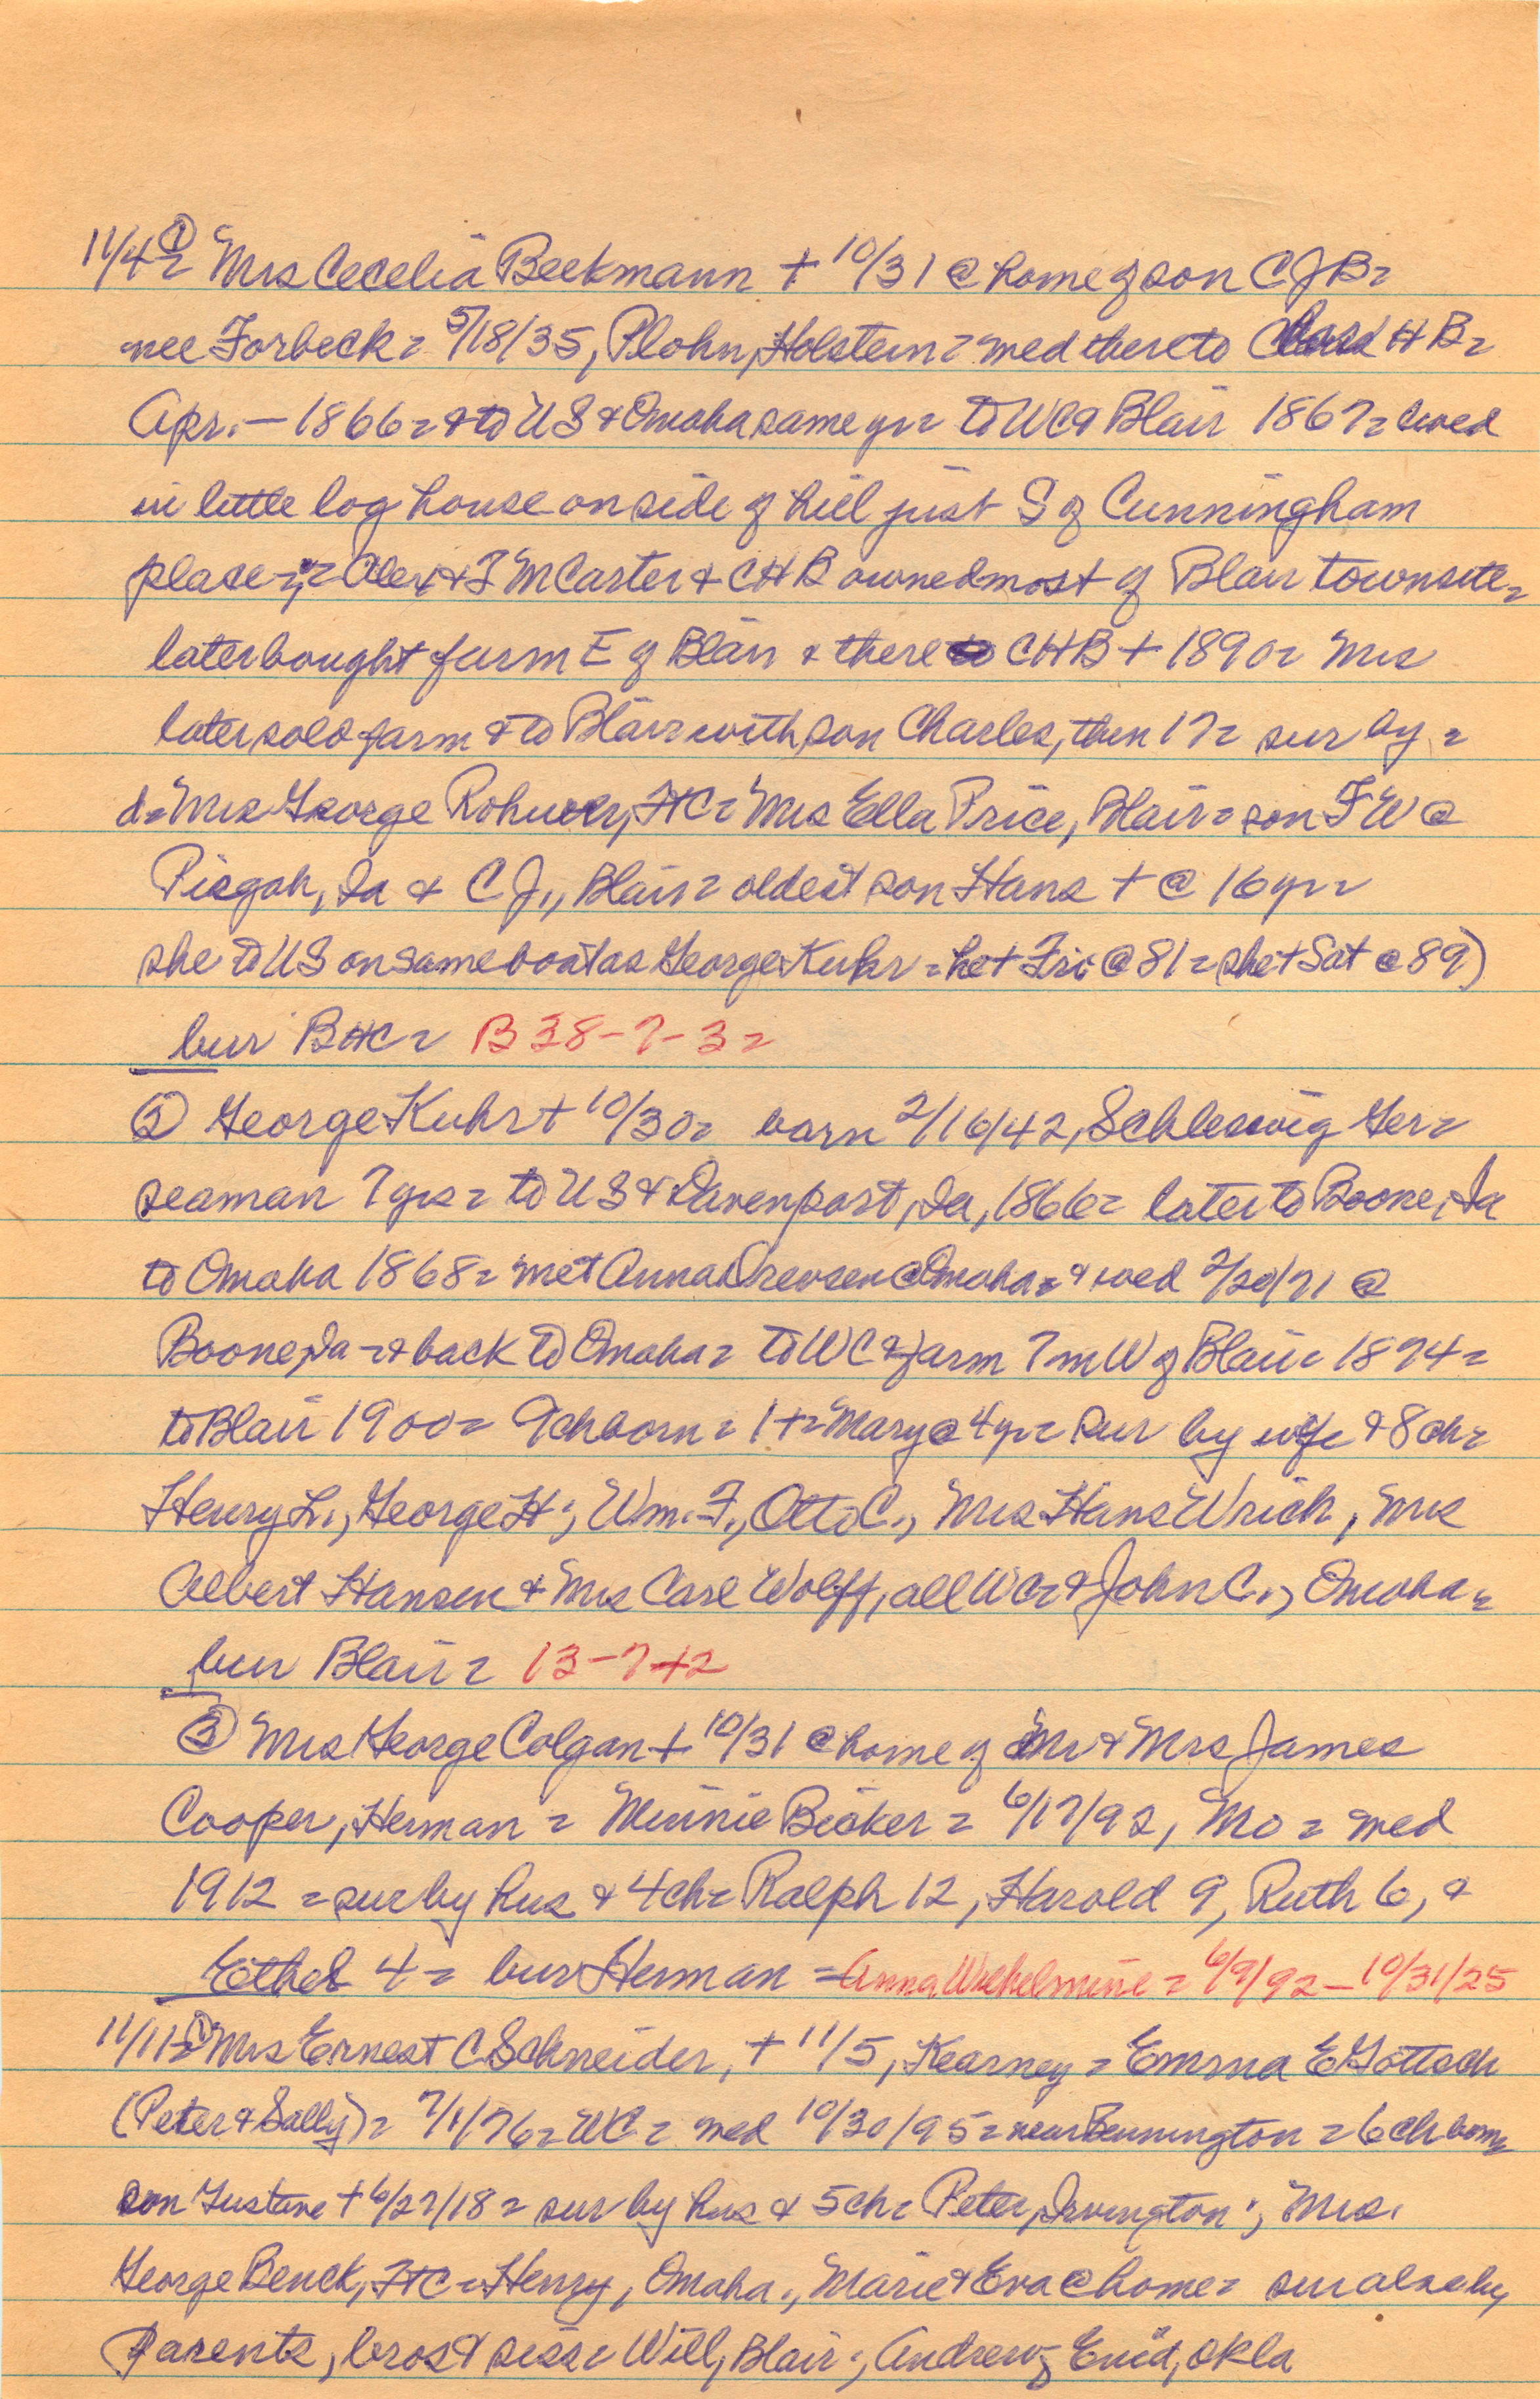 11/4 = ① Mrs Cecelia Beekmann + 10/31 @ home of son C J B =
nee Forbeck = 5/18/35, Plohn, Holstein = med there to H B =
Apr. – 1866 = & to US & Omaha same yr = to WC & Blair 1867 = lived
in little log house on side of hill just S of Cunningham
place = Alex & T M Carter & CHB owned most of Blair townsite =
later bought farm E of Blair & there CHB + 1890 = Mrs
later sold farm & to Blair with son Charles, then 17 = sur by =
d = Mrs George Rohwer, FtC = Mrs Ella Price, Blair = son F W @
Pisgah, Ia & C J., Blair = oldest son Hans + @ 16 yr =
she to US on same boat as George Kuhr = he + Fri @ 81 = she + Sat @ 89)
bur BHC = B 38-7-3 =
② George Kuhr + 10/30 = born 2/16/42, Schleswig Ger =
seaman 7 yrs = to US & Davenport, Ia, 1866 = later to Boone, Ia
to Omaha 1868 = met Anna Drevsen @ Omaha = & wed 2/20/71 @
Boone, Ia = & back to Omaha = to WC & farm 7 m W of Blair = 1874 =
to Blair 1900 = 9 ch born = 1 + = Mary @ 4 yr = sur by wife & 8 ch =
Henry L., George H; Wm. F., Otto C., Mrs Hans Wrich, Mrs
Albert Hansen & Mrs Carl Wolff, all WC = & John C., Omaha =
bur Blair = 13-7-+2
③ Mrs George Colgan + 10/31 @ home of Mr & Mrs James
Cooper, Herman = Minnie Bicker = 6/17/92, Mo = med
1912 = sur by hus & 4 ch = Ralph 12, Harold 9, Ruth 6, &
Ethel 4 = bur Herman = Anna Wilhelmine = 6/9/92 – 10/31/25
11/11 = ① Mrs Ernest C Schneider, + 11/5, Kearney = Emma E Gottsch
(Peter & Sally) = 7/1/76 = WC = med 10/30/95 = near Bennington = 6 ch born
son Gustave + 6/27/18 = sur by hus & 5 ch = Peter, Irvington; Mrs.
George Benck, FtC = Henry, Omaha; Marie & Eva @ home = sur also by
Parents, bros & siss = Will, Blair; Andrew, Enid, Okla